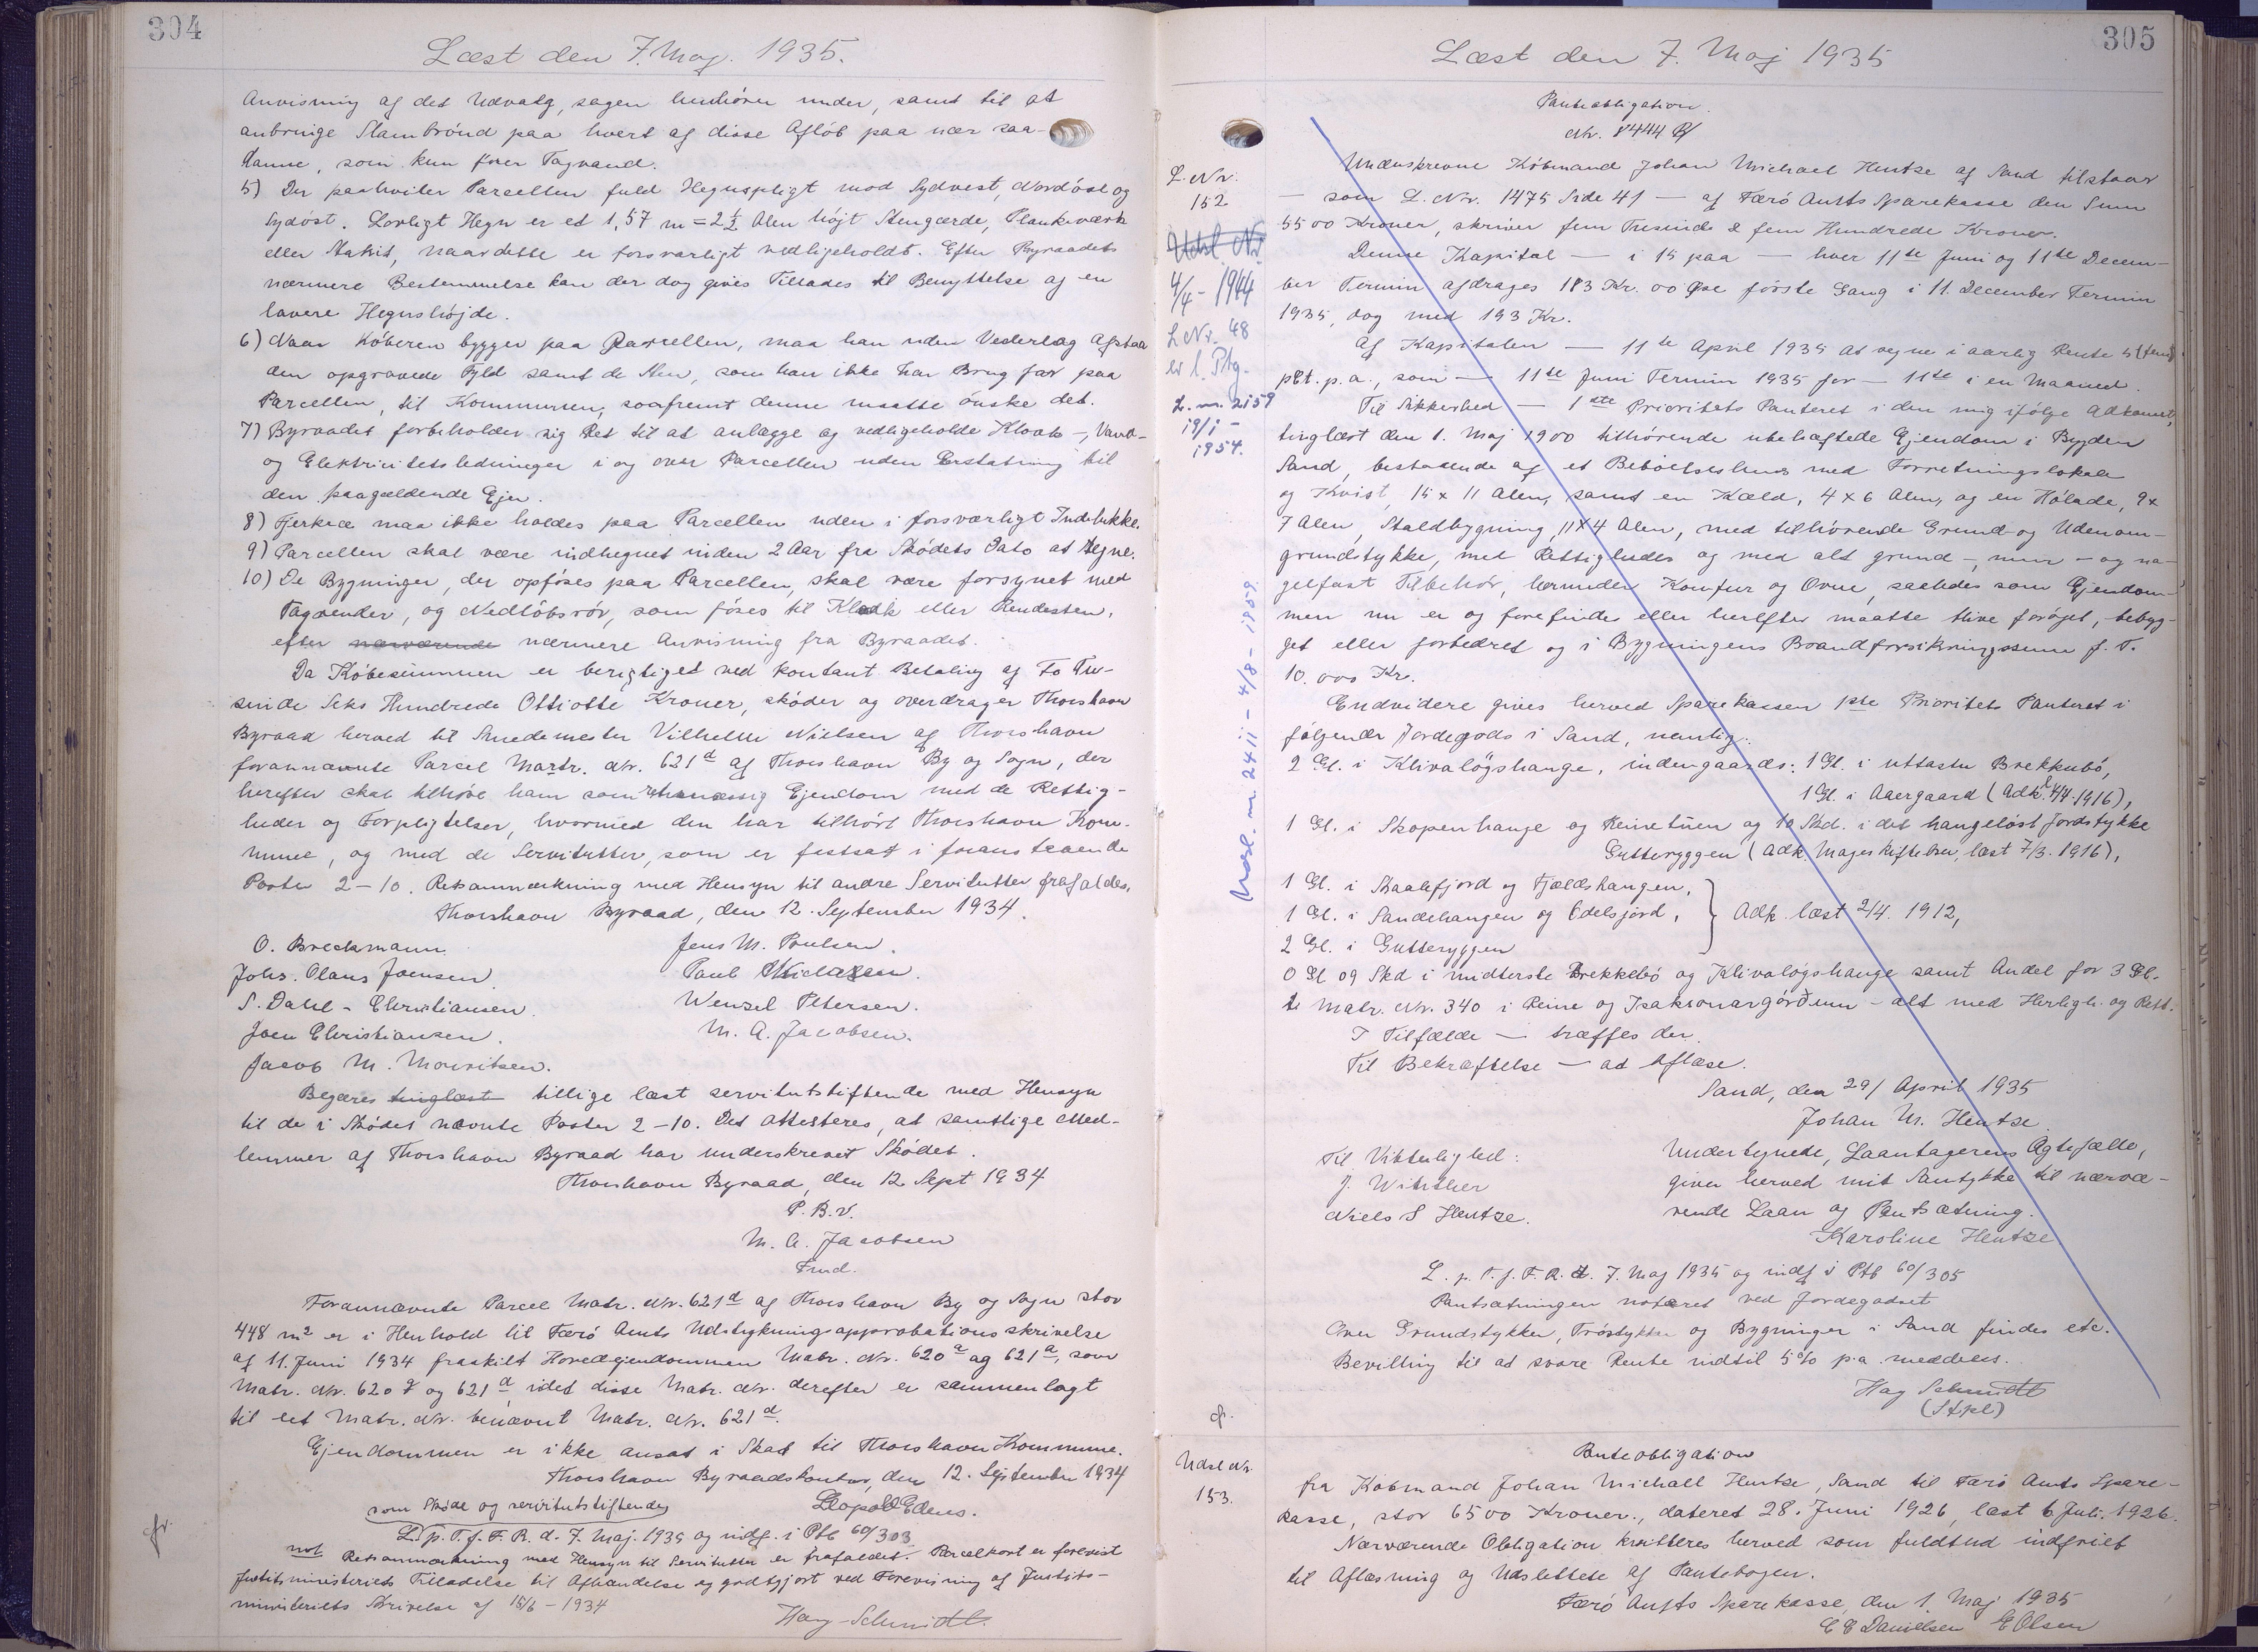 304
Læst den 7. Maj. 1935.
Anvisning af det Udvalg, sagen henhører under, samt til at
anbringe Slambrönd paa hvert af disse Aflöb paa nær saa-
danne, som kun förer Tagvand.
5) Der paahviler Parcellen fuld Hegnspligt mod Sydvest, Nordöst og
Sydöst. Lovligt Hegn er et 1,57 m = 2½ Alen höjt Stengærde, Plankeværk
eller Stakit, naar dette er forsvarligt vedligeholdt. Efter Byraadets
nærmere Bestemmelse kan der dog gives Tilladelse til Benyttelse af en
lavere Hegnshöjde.
6) Naar Köberen bygger paa Parcellen, maa han uden Vederlag afstaa
den opgravede Fyld samt de Sten, som han ikke har Brug for paa
Parcellen, til Kommunen, saafremt denne maatte önske det.
7) Byraadet forbeholder sig Ret til at anlægge og vedligeholde Kloak-, Vand-
og Elektricitetsledninger i og over Parcellen uden Erstatning til
den paagældende Ejer.
8) Fjerkræ maa ikke holdes paa Parcellen uden i forsvarligt Indelukke.
9) Parcellen skal være indhegnet inden 2 Aar fra Sködets Dato at regne.
10) De Bygninger, der opföres paa Parcellen, skal være forsynet med
Tagrender, og Nedlöbsrör, som föres til Kloak eller Rendesten,
efter nærværende nærmere Anvisning fra Byraadet.
Da Köbesummen er berigtiget ved kontant Betaling af To Tu-
sinde Seks Hundrede Ottiotte Kroner, sköder og overdrager Thorshavn
Byraad herved til Smedemester Vilhelm Nielsen af Thorshavn
forannævnte Parcel Matr. Nr. 621d af Thorshavn By og Sogn, der
herefter skal tilhöre ham som retmæssig Ejendom med de Rettig-
heder og Forpligtelser, hvormed den har tilhört Thorshavn Kom-
mune, og med de Servitutter, som er fastsat i foranstaaende
Poster 2-10. Retsanmærkning med Hensyn til andre Servitutter frafaldes.
Thorshavn Byraad, den 12. September 1934.
O. Breckmann.
Johs. Olaus Joensen.
S. Dahl-Christiansen.
Joen Christiansen.
Jacob M. Mouritsen.
Jens M. Poulsen.
Paul Niclasen.
Wenzel Petersen.
M. A. Jacobsen.
Begæres tinglæst tillige læst servitutstiftende med Hensyn
til de i Sködet nævnte Poster 2-10. Det attesteres, at samtlige Med-
lemmer af Thorshavn Byraad har underskrevet Sködet.
Thorshavn Byraad, den 12 Sept 1934
P. B. V.
M. A. Jacobsen
Fmd.
Forannævnte Parcel Matr. Nr. 621d af Thorshavn By og Sogn stor
448 m² er i Henhold til Færö Amts Udstykningsapprobationsskrivelse
af 11. Juni 1934 fraskilt Hovedejendommen Matr. Nr. 620a og 621a, som
Matr. Nr. 620 og 621d idet disse Matr. Nr. derefter er sammenlagt
til eet Matr. Nr. benævnt Matr. Nr. 621d.
Ejendommen er ikke ansat i Skat til Thorshavn Kommune.
Thorshavn Byraadskontor, den 12. September 1934
som Sköde og servitutstiftende
Leopold Edens.
L. p. T. f. F. R. d. 7. Maj. 1935 og indf. i Ptb 60/303
not
Retsanmærkning med Hensyn til Servitutter er frafaldet. Parcelkort er forevist
Justitsministeriets Tilladelse til Afhændelse er godtgjort ved Forevisning af Justits-
ministeriets Skrivelse af 15/6-1934
Hay-Schmidt.
cfr.
305
Læst den 7. Maj 1935
L. Nr.
152
Udsl. Nr
4/4-1944
L Nr. 48
L. nr. 2159
19/1-
1954.
Nosl. nr. 2411 - 4/8-1959.
Panteobligation.
Nr. 8444 B/
Underskrevne Köbmand Johan Michael Hentze af Sand tilstaar
— som L. Nr. 1475 Side 41 — af Færö Amts Sparekasse den Sum
5500 Kroner, skriver fem Tusinde & fem Hundrede Kroner.
Denne Kapital — i 15 paa — hver 11te Juni og 11te Decem-
ber Termin afdrages 183 Kr. 00 Öre förste Gang i 11. December Termin
1935, dog med 193 Kr.
Af Kapitalen — 11te April 1935 at regne i aarlig Rente 5 (fem)
pCt. p.a., som — 11te Juni Termin 1935 for — 11te i en Maaned.
Til Sikkerhed — 1ste Prioritets Panteret i den mig ifölge Adkomst,
tinglæst den 1. Maj 1900 tilhörende ubehæftede Ejendom i Bygden
Sand, bestaaende af et Beboelseshus med Forretningslokale
og Kvist, 15 x 11 Alen, samt en Kæld, 4 x 6 Alen, og en Hölade, 9 x
7 Alen, Staldbygning, 11 x 4 Alen, med tilhörende Grund og Udenom-
grundstykke, med Rettigheder og med alt grund-, mur- og na-
gelfast Tilbehör, herunder Komfur og Ovne, saaledes som Ejendom-
men nu er og forefindes eller herefter maatte blive foröget, bebyg-
get eller forbedret og i Bygningens Brandforsikringssum f. T.
10.000 Kr.
Endvidere gives herved Sparekassen 1ste Prioritets Panteret i
fölgende Jordegods i Sand, nemlig:
2 Gl. i Klivalögshauge, indengaards: 1 Gl. i uttastu Brekkubö,
1 Gl. i Aaergaard (Adk. l 4/4.1916),
1 Gl. i Skopenhauge og Reinetúen og 10 Skd. i det haugelöst Jordstykke
Gutteryggen (Adk. Mageskiftebrev, læst 7/3.1916),
1 Gl. i Skaalefjord og Fjældshaugen,
1 Gl. i Sandehaugen og Edelsjord,
2 Gl. i Gutteryggen
Adk. læst 2/4. 1912,
0 Gl 09 Skd i midterste Brekkebö og Klivalögshauge samt Andel for 3 Gl.
i Matr. Nr. 340 i Reine og Isaksonargörðum - alt med Herligh. og Rett.
I Tilfælde — træffes der.
Til Bekræftelse — at aflæse.
Sand, den 29/ April 1935
Johan M. Hentze.
Til Vitterlighed:
J. Winther
Niels S Hentze.
Undertegnede, Laantagerens Ægtefælle,
giver herved mit Samtykke til nærvæ-
rende Laan og Pantsætning.
Karoline Hentze
L. p. T. f. F. R. d. 7. Maj 1935 og indf i Ptb 60/305
Pantsætningen noteret ved Jordegodset
Over Grundstykker, Tröstykker og Bygninger i Sand findes etc.
Bevilling til at svare Rente indtil 5% p.a. meddeles.
Hay Schmidt
(Stpl)
cfr.
Udsl. Nr.
153.
Panteobligation
fra Köbmand Johan Michael Hentze, Sand til Færö Amts Spare-
kasse, stor 6500 Kroner., dateret 28. Juni 1926, læst 6 Juli. 1926.
Nærværende Obligation kvitteres herved som fuldtud indfriet
til Aflæsning og Udslettelse af Pantebogen.
Færö Amts Sparekasse, den 1. Maj 1935
E E Danielsen E Olsen